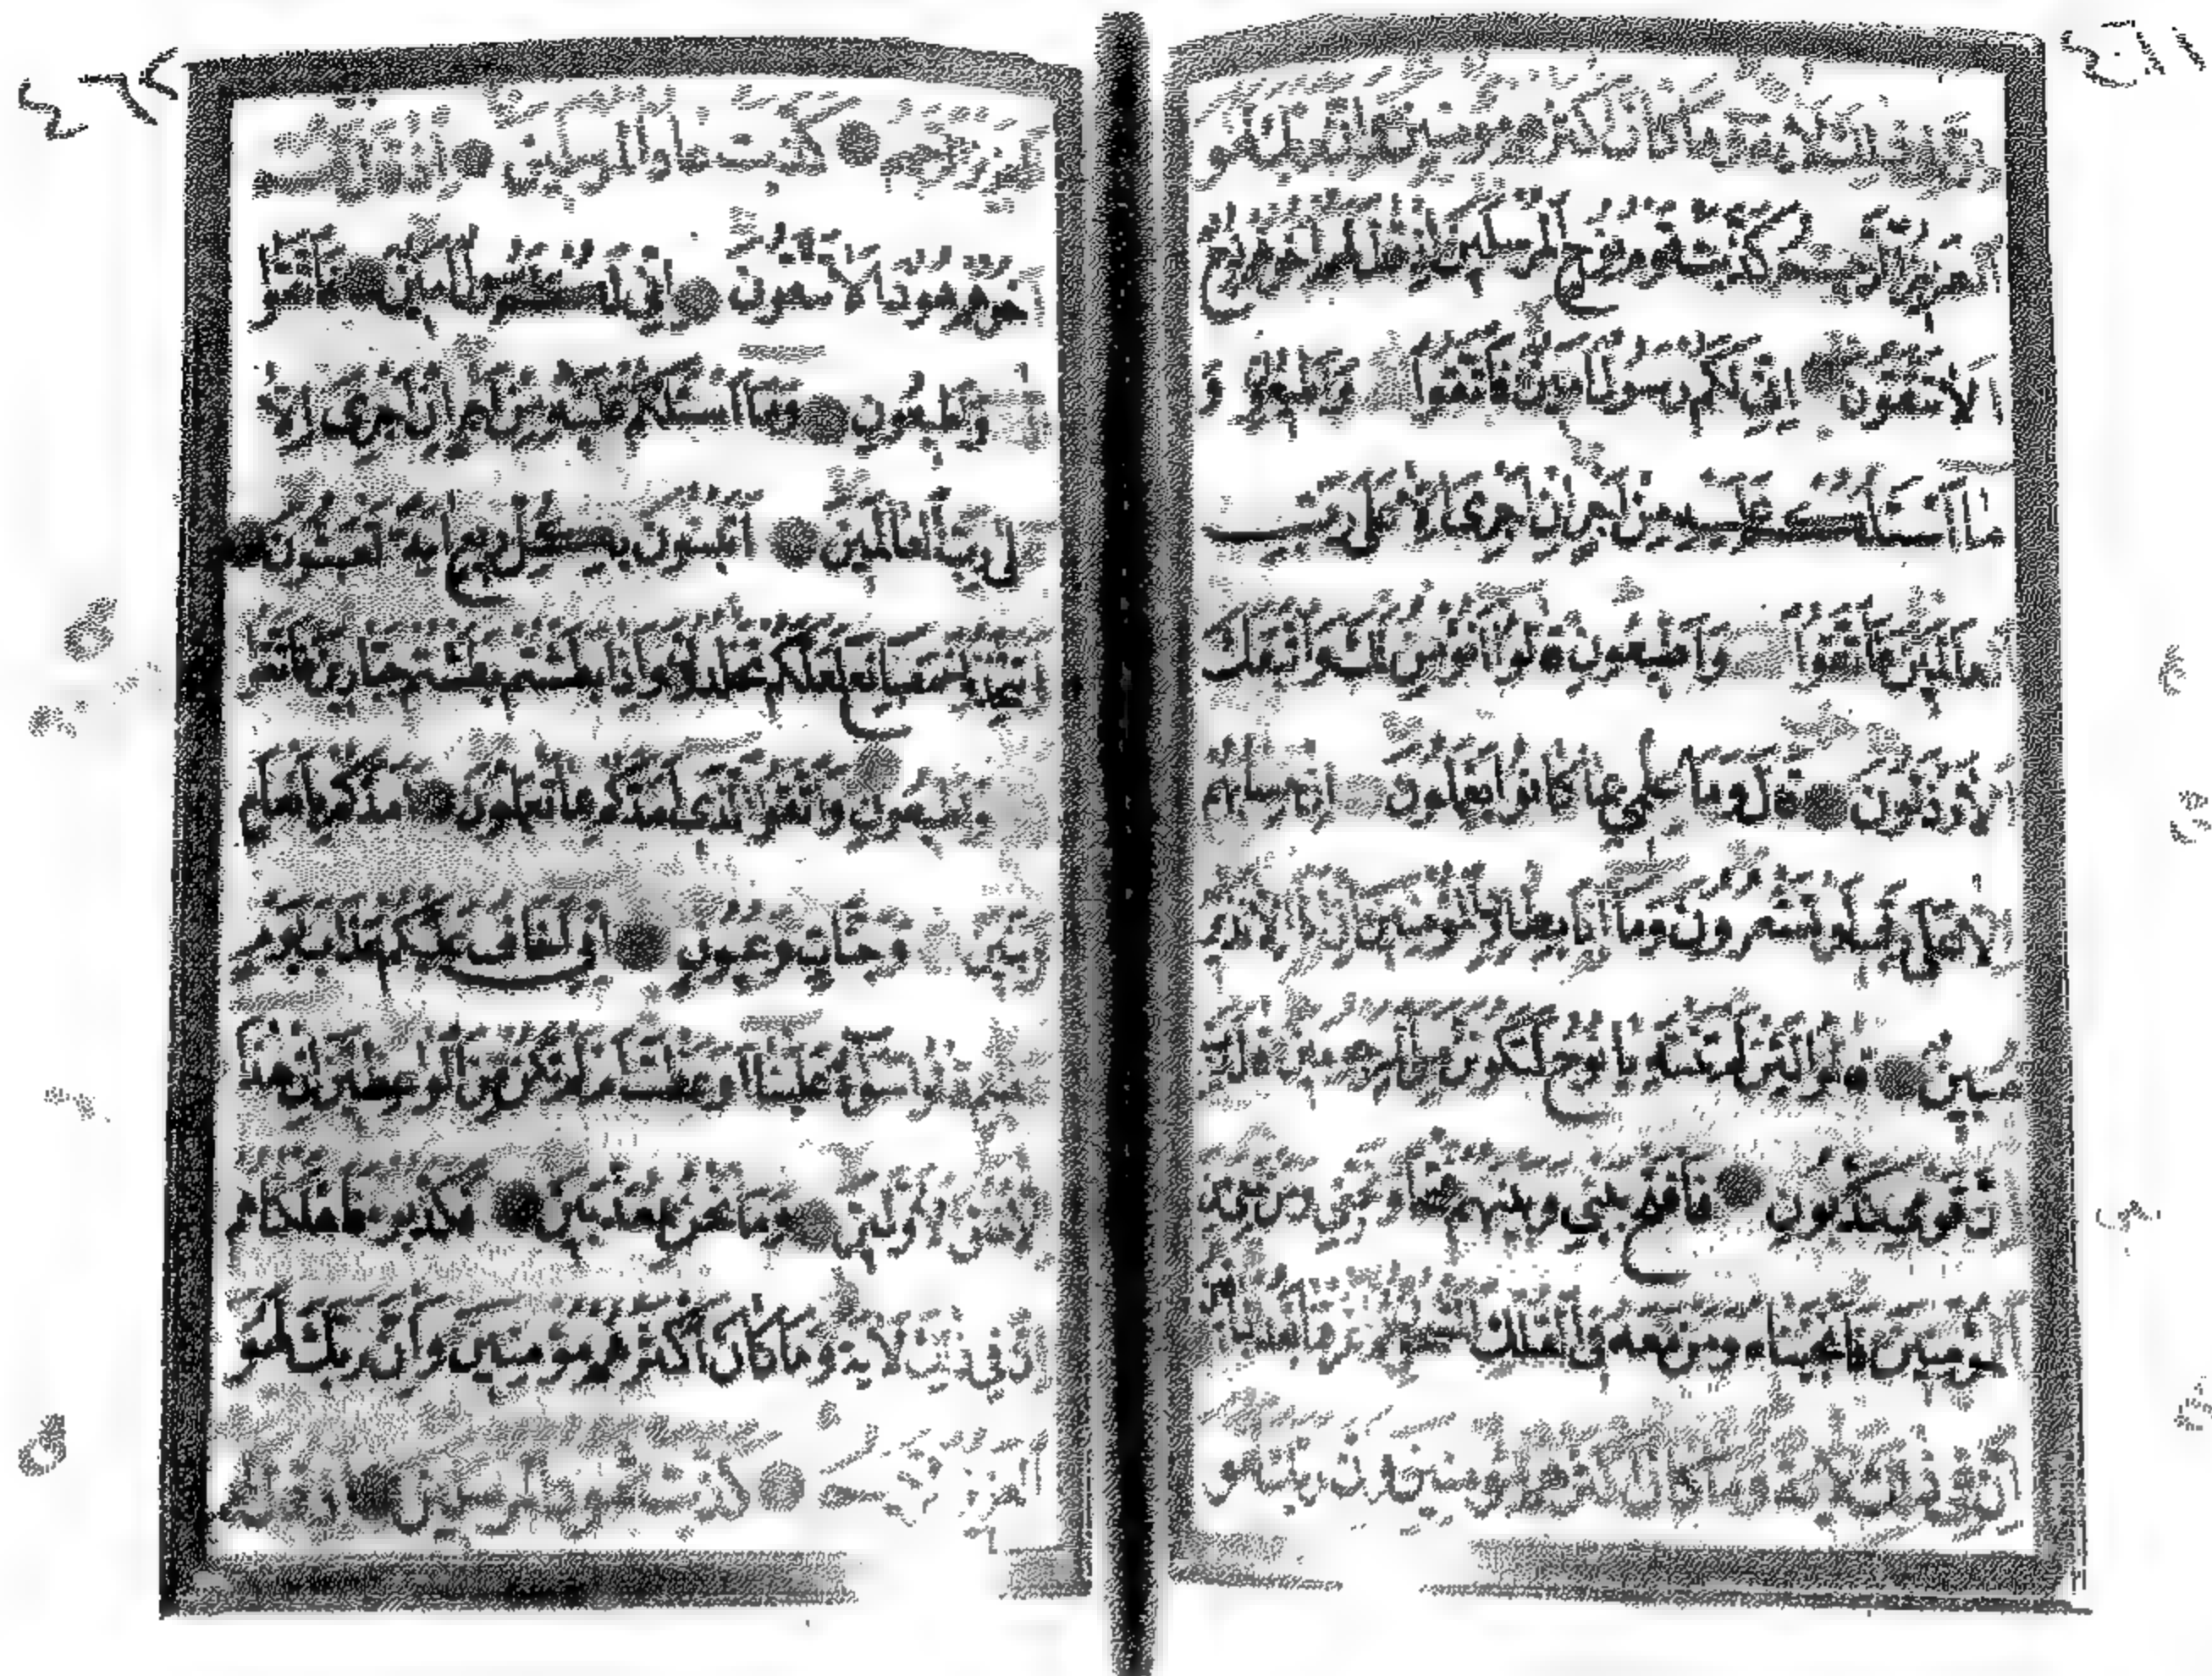 العزيز الرحيم كذبت قوم نوح المرسلين اذ قال لهم اخوهم نوح
الا تتقون اني لكم رسول امين فاتقوا الله واطيعون و
ما اسئلكم عليه من اجر ان اجري الا على رب
العالمين فاتقوا الله واطيعون قالوا انؤمن لك واتبعك
الارذلون قال وما علمي بما كانوا يعملون ان حسابهم
الا على ربي لو تشعرون وما انا بطارد المؤمنين ان انا الا نذير
مبين قالوا لئن لم تنته يا نوح لتكونن من المرجومين قال رب
ان قومي كذبون فافتح بيني وبينهم فتحا ونجني ومن معي من
المؤمنين فانجيناه ومن معه في الفلك المشحون ثم اغرقنا بعد الباقين
ان في ذلك لاية وما كان اكثرهم مؤمنين وان ربك لهو
العزيز الرحيم كذبت عاد المرسلين اذ قال لهم
اخوهم هود الا تتقون اني لكم رسول امين فاتقوا
الله واطيعون وما اسئلكم عليه من اجر ان اجري الا
على رب العالمين اتبنون بكل ريع اية تعبثون
وتتخذون مصانع لعلكم تخلدون واذا بطشتم بطشتم جبارين فاتقوا
الله واطيعون واتقوا الذي امدكم بما تعلمون امدكم بانعام
وبنين وجنات وعيون اني اخاف عليكم عذاب يوم
عظيم قالوا سواء علينا اوعظت ام لم تكن من الواعظين ان هذا
الا خلق الاولين وما نحن بمعذبين فكذبوه فاهلكناهم
ان في ذلك لاية وما كان اكثرهم مؤمنين وان ربك لهو
العزيز الرحيم كذبت ثمود المرسلين اذ قال